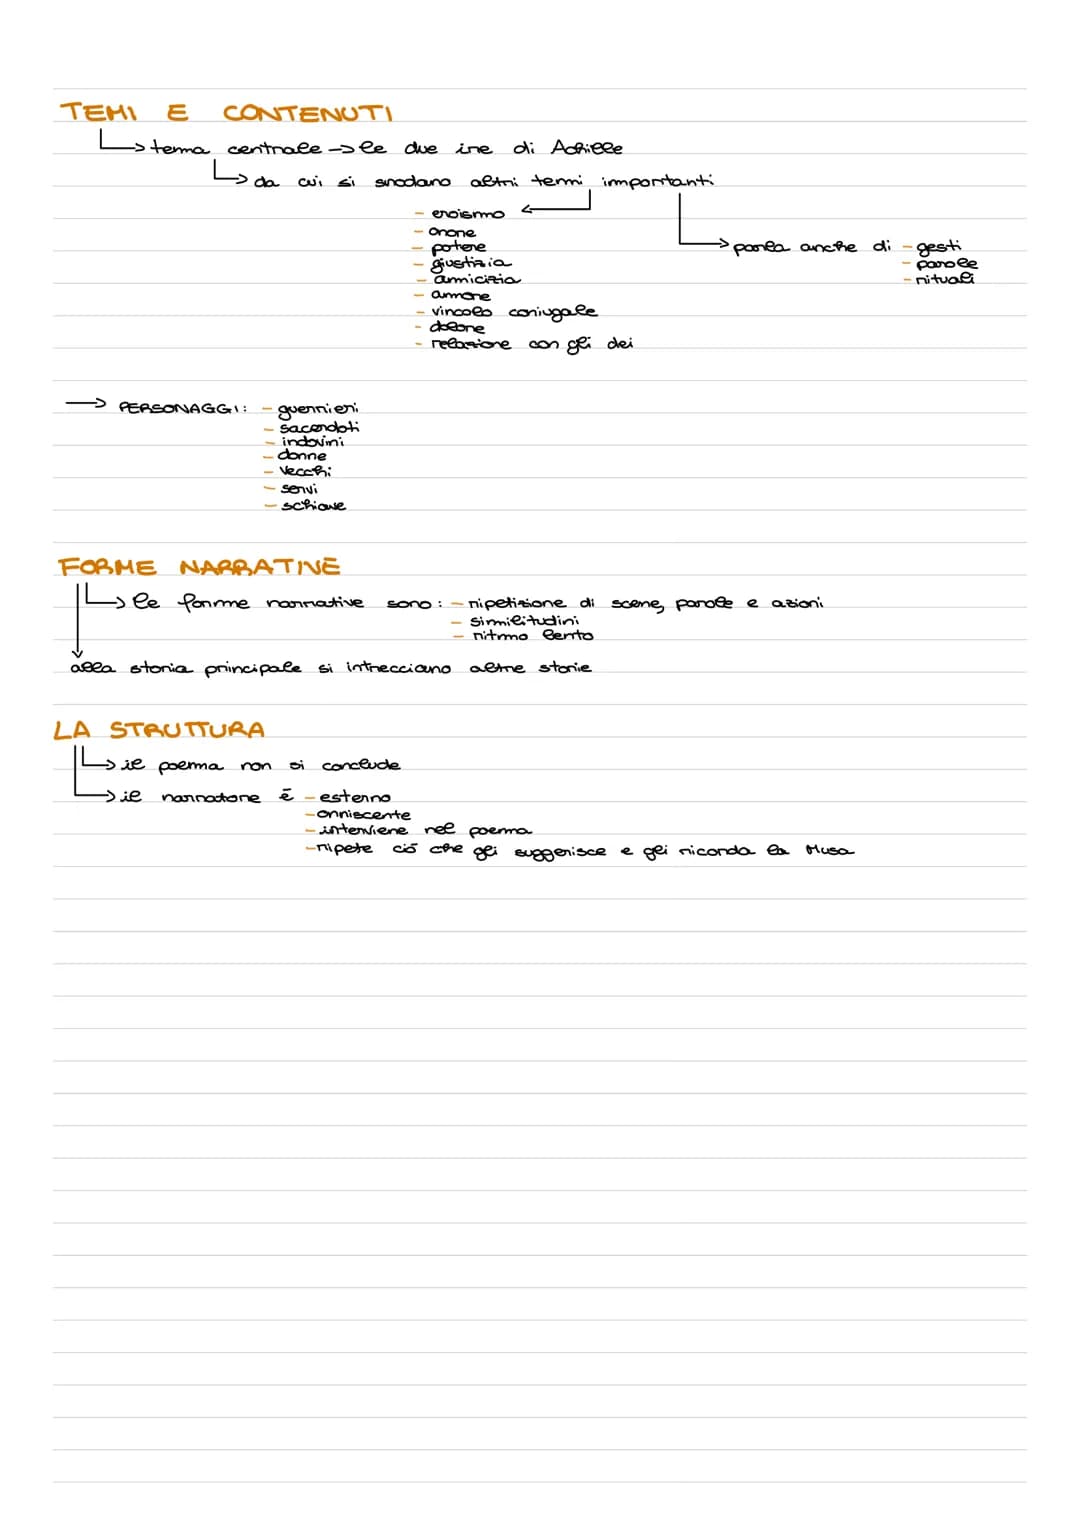 TEMI E CONTENUTI
→ tema centrale → le due ire di Achille
→ da cui si snodano altri temi importanti
- eroismo
- onore
- potere
- giustizia
- amicizia
- amore
- vincolo coniugale
- dolore
- relazione con gli dei
→ parla anche di - gesti
- parole
- rituali
→ PERSONAGGI: - guerrieri
- sacerdoti
- indovini
- donne
- vecchi
- servi
- schiave
FORME NARRATIVE
→ le forme narrative sono: - ripetizione di scene, parole e azioni
- similitudini
- ritmo lento
alla storia principale si intrecciano altre storie
LA STRUTTURA
→ il poema non si conclude
→ il narratore è - esterno
- onniscente
- interviene nel poema
- ripete ciò che gli suggerisce e gli ricorda la Musa